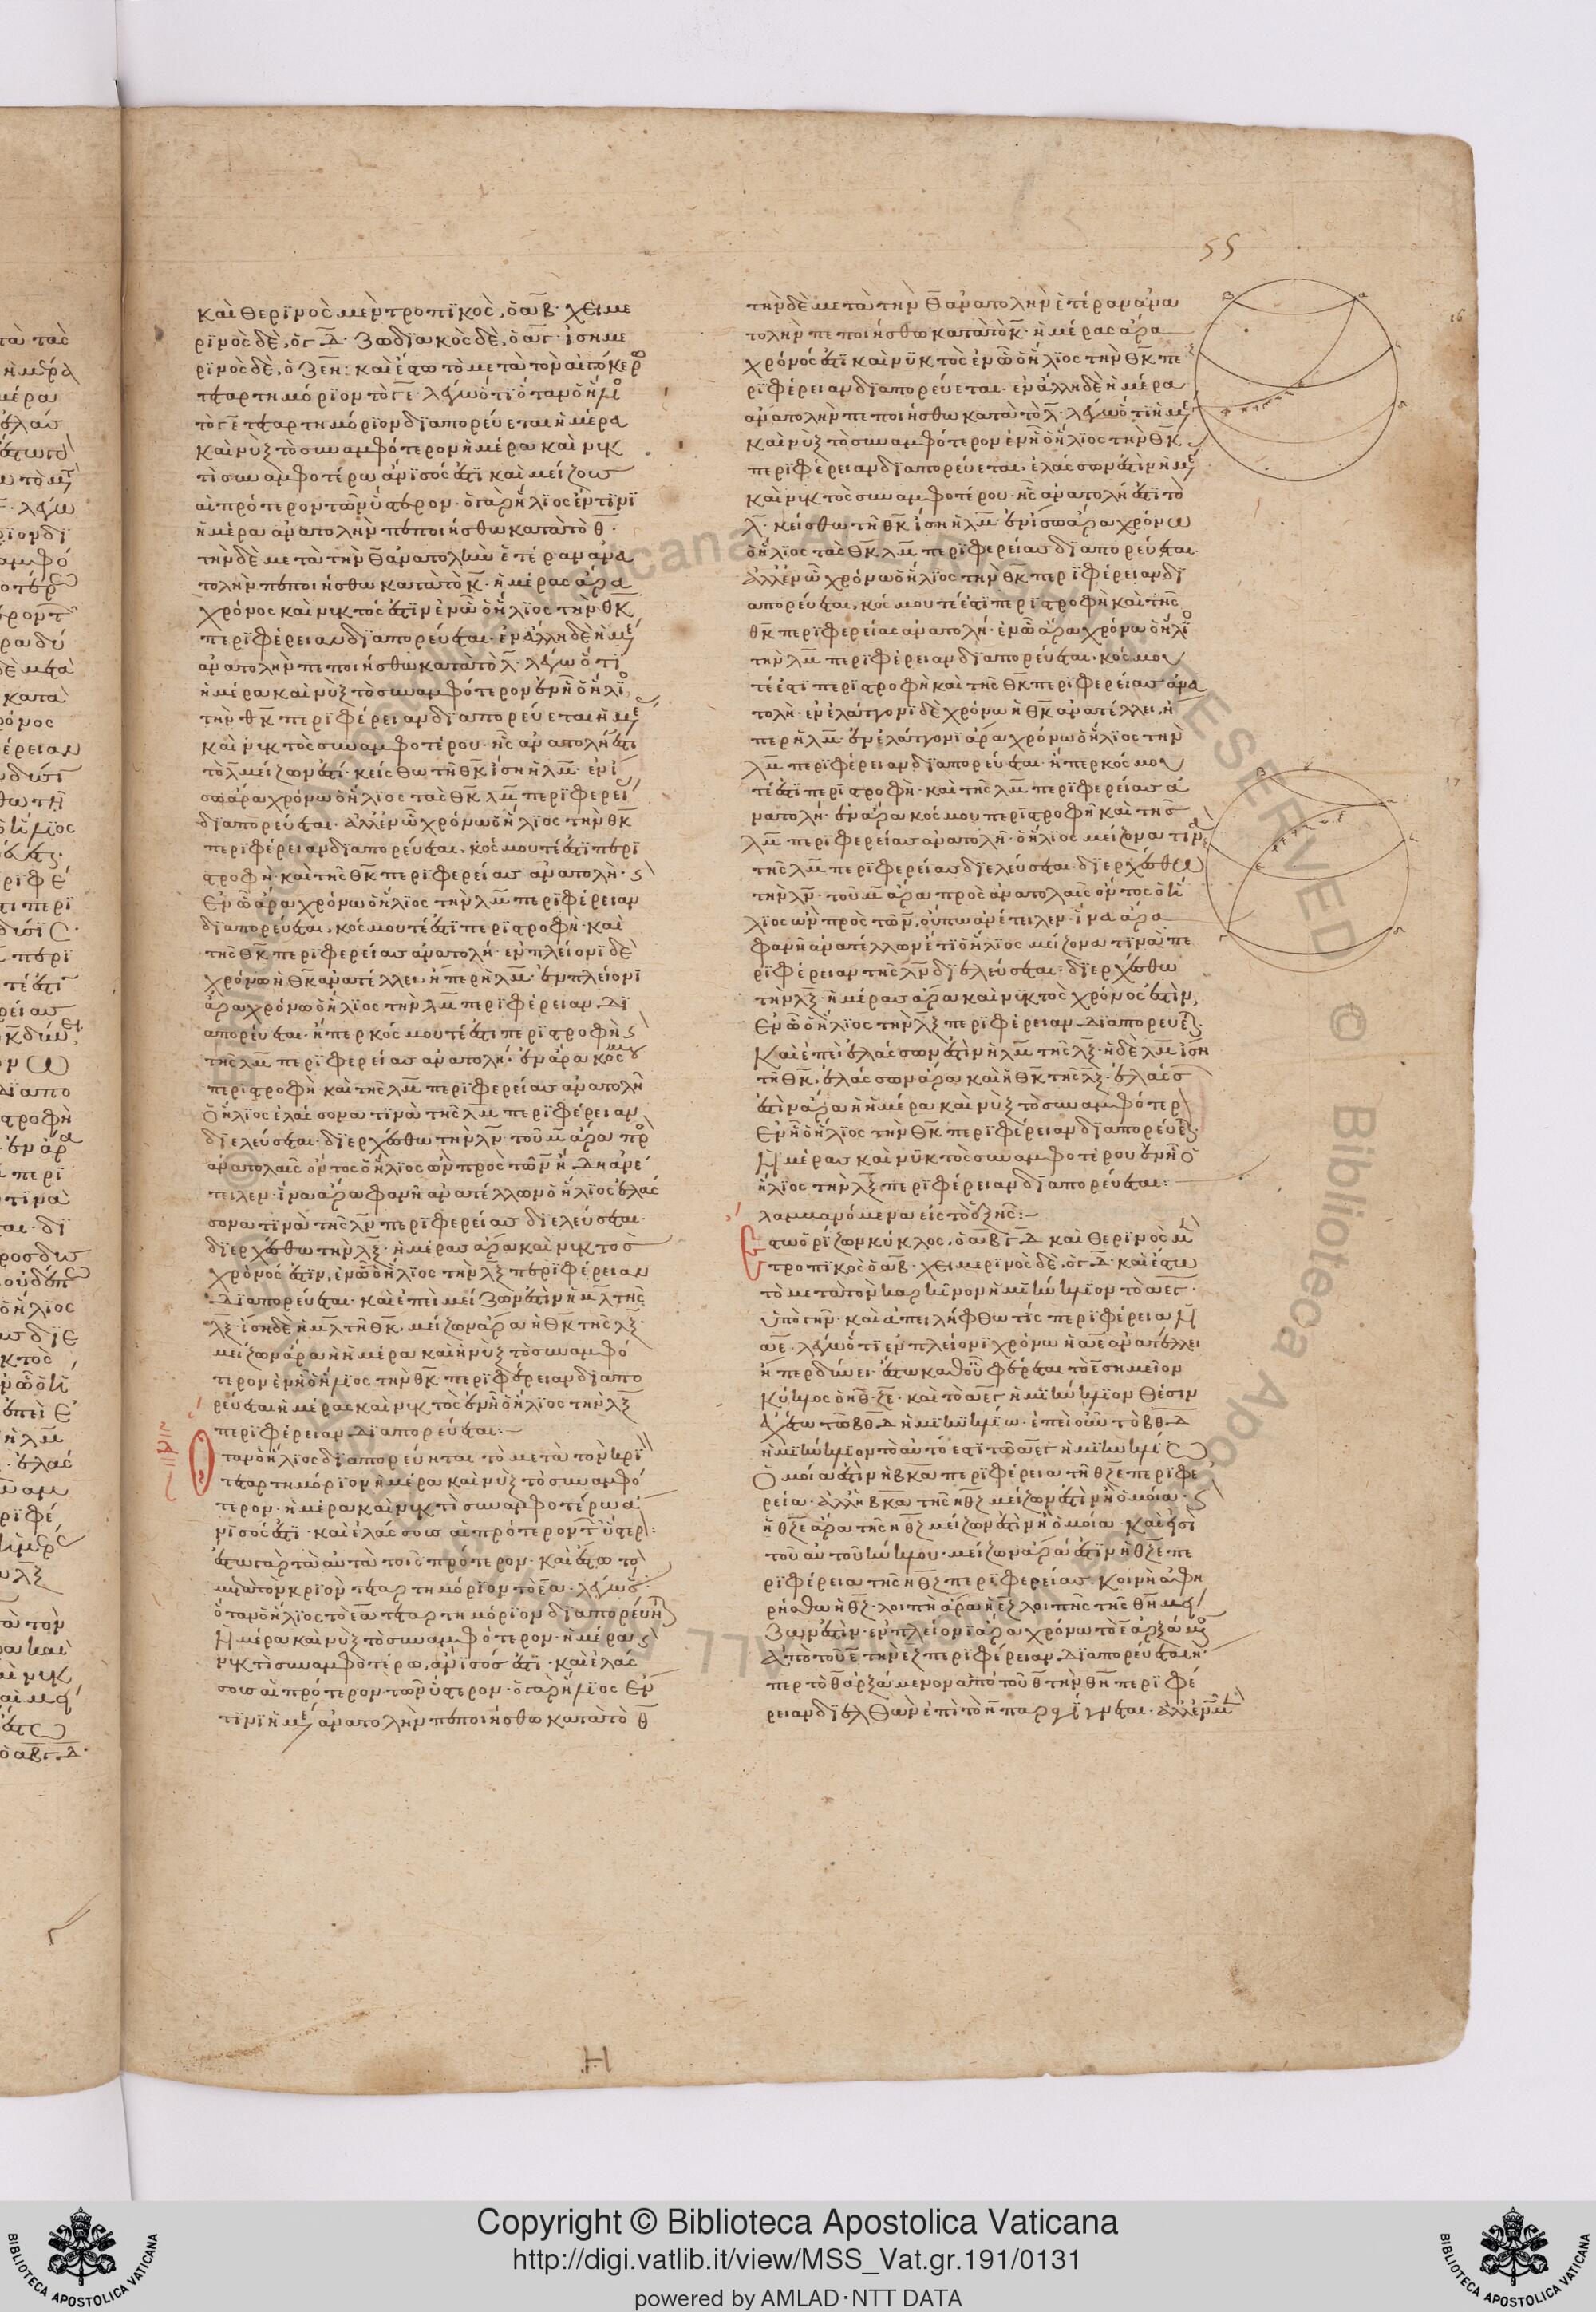 55
καὶ θερϊνὸς μὲν τροπϊκὸς, ὁ αβ· χειμε
ρϊνὸς δὲ, ὁ γδ· ζωδϊακὸς δὲ, ὁ αγ· ἰσημε
ρϊνὸς δὲ, ὁ ζεη: καὶ ἔστω τὸ μετὰ τὸν αἰγόκερ
τεταρτημόρϊον τὸ γε· λέγω ὅτϊ ὅταν ὁ ἥλϊο
τὸ γε τεταρτημόρϊον δϊαπορεύεται ἡμέρα
καὶ νὺξ τὸ συναμφότερον ἡμέρα καὶ νυκ
τὶ συναμφοτέρω ἄνϊσός ἐστϊ καὶ μείζους
αἱ πρότερον τῶν ὕστερον· ὁ γὰρ ἥλϊος ἔν τϊνϊ
ἡμέρα ἀνατολὴν πεποιήσθω κατὰ τὸ θ·
τὴν δὲ μετὰ τὴν θ ἀνατολὴν ἑτέραν ἀνα
τολὴν πεποιήσθω κατὰ τὸ κ· ἡμέρας ἄρα
χρόνος καὶ νυκτός ἐστϊν ἐν ὧ ὁ ἥλϊος τὴν θκ
περϊφέρειαν δϊαπορεύεται· ἐν ἄλλη δὲ ἡμέ
ἀνατολὴν πεποιήσθω κατὰ τὸ λ· λέγω ὅτϊ
ἡμέρα καὶ νὺξ τὸ συναμφότερον ἐν ἧ ὁ ἥλϊο
τὴν θκ περϊφέρειαν δϊαπορεύεται ἡμέ
καὶ νυκτὸς συναμφοτέρου· ἧς ἀνατολή ἐστϊ
τὸ λ μείζων ἐστί· κείσθω τῆ θκ ἴση ἡ λμ· ἐν ἴ
σω ἄρα χρόνω ὁ ἥλϊος τὰς θκ λμ περϊφερεί
δϊαπορεύεται· ἀλλ' ἐν ὧ χρόνω ὁ ἥλϊος τὴν θκ
περϊφέρειαν δϊαπορεύεται· κόσμου τέ ἐστϊ περϊ
στροφὴ· καὶ τῆς θκ περϊφερείας ἀνατολὴ·
ἐν ὧ ἄρα χρόνω ὁ ἥλϊος τὴν λμ περϊφέρειαν
δϊαπορεύεται, κόσμου τέ ἐστϊ περϊστροφὴ· καὶ
τῆς θκ περϊφερείας ἀνατολή· ἐν πλείονϊ δὲ
χρόνω ἡ θκ ἀνατέλλει, ἤπερ ἡ λμ· ἐν πλείονϊ
ἄρα χρόνω ὁ ἥλϊος τὴν λμ περϊφέρειαν δϊ
απορεύεται· ἤπερ κόσμου τέ ἐστϊ περϊστροφὴ
τῆς λμ περϊφερείας ἀνατολή· ἐν ἄρα κόσμου
περϊστροφὴ καὶ τῆς λμ περϊφερείας ἀνατολῆ
ὁ ἥλϊος ἐλάσσονα τϊνὰ τῆς λμ περϊφέρειαν
δϊελεύσεται· δϊερχέσθω τὴν λν· τοῦ μ ἄρα πρὸ
ἀνατολαῖς ὄντος ὁ ἥλϊος ὢν πρὸς τῶ ν ἤδη ἀνέ
τειλεν· ἵνα ἄρα φανῆ ἀνατέλλων ὁ ἥλϊος ἐλάσ
σονα τϊνὰ τῆς λν περϊφερείας δϊελεύσεται·
δϊερχέσθω τὴν λξ· ἡμέρας ἄρα καὶ νυκτὸς
χρόνος ἐστϊν, ἐν ὧ ὁ ἥλϊος τὴν λξ περϊφέρειαν
δϊαπορεύεται· καὶ ἐπεὶ μείζων ἐστὶν ἡ μλ τῆς
λξ· ἴση δὲ ἡ μλ τῆ θκ, μείζων ἄρα ἡ θκ τῆς λξ·
μείζων ἄρα ἡ ἡμέρα καὶ ἡ νὺξ τὸ συναμφό
τερον ἐν ἧ ὁ ἥλϊος τὴν θκ περϊφέρειαν δϊαπο
ρεύεται ἡμέρας καὶ νυκτὸς ἐν ἧ ὁ ἥλϊος τὴν λξ
περϊφέρειαν δϊαπορεύεται:
Ὅταν ὁ ἥλϊος δϊαπορεύηται τὸ μετὰ τὸν κρϊ
τεταρτημόρϊον ἡμέρα καὶ νὺξ τὸ συναμφό
τερον· ἡμέρα καὶ νυκτὶ συναμφοτέρω ἄ
νϊσός ἐστϊ· καὶ ἐλάσσους αἱ πρότερον τ ὕστερ:
ἔστω γὰρ τὰ αὐτὰ τοῖς πρότερον· καὶ ἔστω τὸ
μετὰ τὸν κρϊὸν τεταρτημόρϊον τὸ εα· λέγω ὅ
ὅταν ὁ ἥλϊος τὸ εα τεταρτημόρϊον δϊαπορεύη
ἡμέρα καὶ νὺξ τὸ συναμφότερον· ἡμέρα
νυκτὶ συναμφοτέρω, ἄνϊσός ἐστϊ· καὶ ἐλάσ
σους αἱ πρότερον τῶν ὕστερον· ὁ γὰρ ἥλϊος ἐν
τϊνϊ ἡμέ ἀνατολὴν πεποιήσθω κατὰ τὸ θ
τὴν δὲ μετὰ τὴν θ ἀνατολὴν ἑτέραν ἀνα
τολὴν πεποιήσθω κατὰ τὸ κ· ἡμέρας ἄρα
χρόνός ἐστϊ καὶ νυκτὸς ἐν ὧ ὁ ἥλϊος τὴν θκ πε
ρϊφέρειαν δϊαπορεύεται· ἐν ἄλλη δὲ ἡμέρα
ἀνατολὴν πεποιήσθω κατὰ τὸ λ· λέγω ὅτϊ ἡμέ
καὶ νὺξ τὸ συναμφότερον ἐν ἧ ὁ ἥλϊος τὴν θκ
περϊφέρειαν δϊαπορεύεται, ἐλάσσων ἐστὶν ἡμέ
καὶ νυκτὸς συναμφοτέρου· ἧς ἀνατολή ἐστϊ τὸ
λ· κείσθω τῆ θκ ἴση ἡ λμ· ἐν ἴσω ἄρα χρόνω
ὁ ἥλϊος τὰς θκ λμ περϊφερείας δϊαπορεύεται·
ἀλλ' ἐν ὧ χρόνω ὁ ἥλϊος τὴν θκ περϊφέρειαν δϊ
απορεύεται, κόσμου τέ ἐστϊ περϊστροφὴ καὶ τῆς
θκ περϊφερείας ἀνατολή· ἐν ὧ ἄρα χρόνω ὁ ἥλϊο
τὴν λμ περϊφέρειαν δϊαπορεύεται· κόσμου
τέ ἐστϊ περϊστροφὴ καὶ τῆς θκ περϊφερείας ἀνα
τολὴ· ἐν ἐλάττονϊ δὲ χρόνω ἡ θκ ἀνατέλλει, ἤ
περ ἡ λμ· ἐν ἐλάττονϊ ἄρα χρόνω ὁ ἥλϊος τὴν
λμ περϊφέρειαν δϊαπορεύεται· ἤπερ κόσμου
τέ ἐστϊ περϊστροφὴ· καὶ τῆς λμ περϊφερείας ἀ
νατολή· ἐν ἄρα κόσμου περϊστροφῆ καὶ τῆς
λμ περϊφερείας ἀνατολῆ· ὁ ἥλϊος μείζονα τϊνὰ
τῆς λμ περϊφερείας δϊελεύσεται· δϊερχέσθω
τὴν λν· τοῦ μ ἄρα πρὸς ἀνατολαῖς ὄντος ὁ ἥ
λϊος ὢν πρὸς τῶ ν, οὔπω ἀνέτειλεν· ἵνα ἄρα
φανῆ ἀνατέλλων ἔτϊ ὁ ἥλϊος μείζονα τϊνὰ πε
ρϊφέρειαν τῆς λν δϊελεύσεται: δϊερχέσθω
τὴν λξ· ἡμέρας ἄρα καὶ νυκτὸς χρόνος ἐστὶν,
ἐν ὧ ὁ ἥλϊος τὴν λξ περϊφέρειαν δϊαπορεύε·
καὶ ἐπεὶ ἐλάσσων ἐστὶν ἡ λμ τῆς λξ· ἡ δὲ λμ ἴση
τῆ θκ, ἐλάσσων ἄρα καὶ ἡ θκ τῆς λξ· ἐλάσσ
ἐστὶν ἄρα ἡ ἡμέρα καὶ νὺξ τὸ συναμφότερ
ἐν ἧ ὁ ἥλϊος τὴν θκ περϊφέρειαν δϊαπορεύε·
ἡμέρας καὶ νυκτὸς συναμφοτέρου ἐν ἧ ὁ
ἥλϊος τὴν λξ περϊφέρειαν δϊαπορεύεται:
λαμβανόμενα εἰς τὸ ἑξῆς:
Ἔστω ὁρίζων κύκλος, ὁ αβγδ καὶ θερϊνὸς μ
τροπϊκὸς ὁ αβ· χειμερϊνὸς δὲ, ὁ γδ· καὶ ἔστω
τὸ μετὰ τὸν καρκῖνον ἡμϊκύκλϊον τὸ αεγ·
ὑπὸ γῆν· καὶ ἀπειλήφθω τὶς περϊφέρεια ἡ
αε· λέγω ὅτϊ ἐν πλείονϊ χρόνω ἡ αε ἀνατέλλει
ἤπερ δύνει· ἔστω καθ' οὗ φέρεται τὸ ε σημεῖον
κύκλος ὁ ηθζε· καὶ τὸ αεγ ἡμϊκύκλϊον θέσιν
ἐχέτω τῶ βθδ ἡμϊκυκλίω· ἐπεὶ οὖν τὸ βθδ
ἡμϊκύκλϊον τὸ αὐτό ἐστϊ τῶ αεγ ἡμϊκυκλί
ὁμοία ἐστὶν ἡ βκα περϊφέρεια τῆ θζε περϊφε
ρεία· ἀλλ' ἡ βκα τῆς ηθζ μείζων ἐστὶν ἢ ὁμοία·
ἡ θζε ἄρα τῆς ηθζ μείζων ἐστὶν ἢ ὁμοία· καὶ εἰσὶ
τοῦ αὐτοῦ κύκλου· μείζων ἄρα ἐστϊν ἡ θζε πε
ρϊφέρεια τῆς ηθζ περϊφερείας· κοινὴ ἀφη
ρήσθω ἡ θζ· λοιπὴ ἄρα ἡ εζ λοιπῆς τῆς θη μεί
ζων ἐστὶν· ἐν πλείονϊ ἄρα χρόνω τὸ ε ἀρξάμε
ἀπὸ τοῦ ε τὴν εζ περϊφέρειαν δϊαπορεύεται ἤ
περ τὸ θ ἀρξάμενον ἀπὸ τοῦ θ τὴν θη περϊφέ
ρειαν δϊελθὼν ἐπὶ τὸ η παραγίγνεται· ἀλλ' ἐν ὧ μ
16
17
H
Copyright © Biblioteca Apostolica Vaticana
http://digi.vatlib.it/view/MSS_Vat.gr.191/0131
powered by AMLAD·NTT DATA
BIBLIOTECA APOSTOLICA VATICANA
BIBLIOTECA APOSTOLICA VATICANA